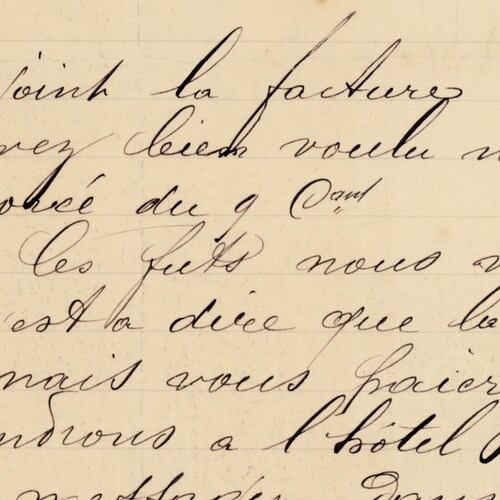 joint la facture
vez bien voulu
orcé du 9 Cant
les futs nous v
est a dire que la
mais vous paier
ndrons a l'hôtel